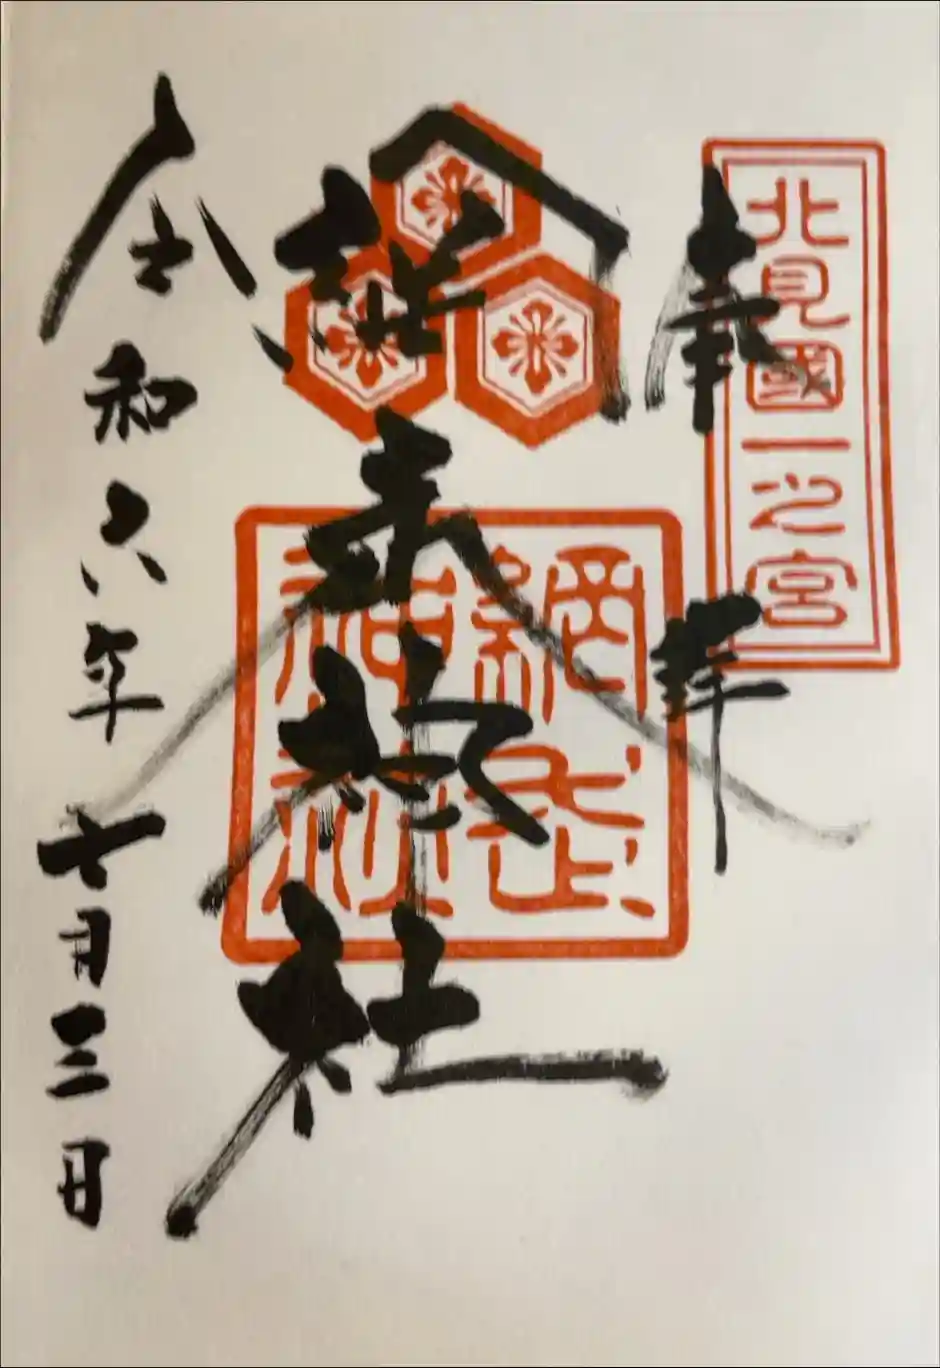 北見國一之宮
奉拝
網走神社
網走
神社
令和六年七月三日